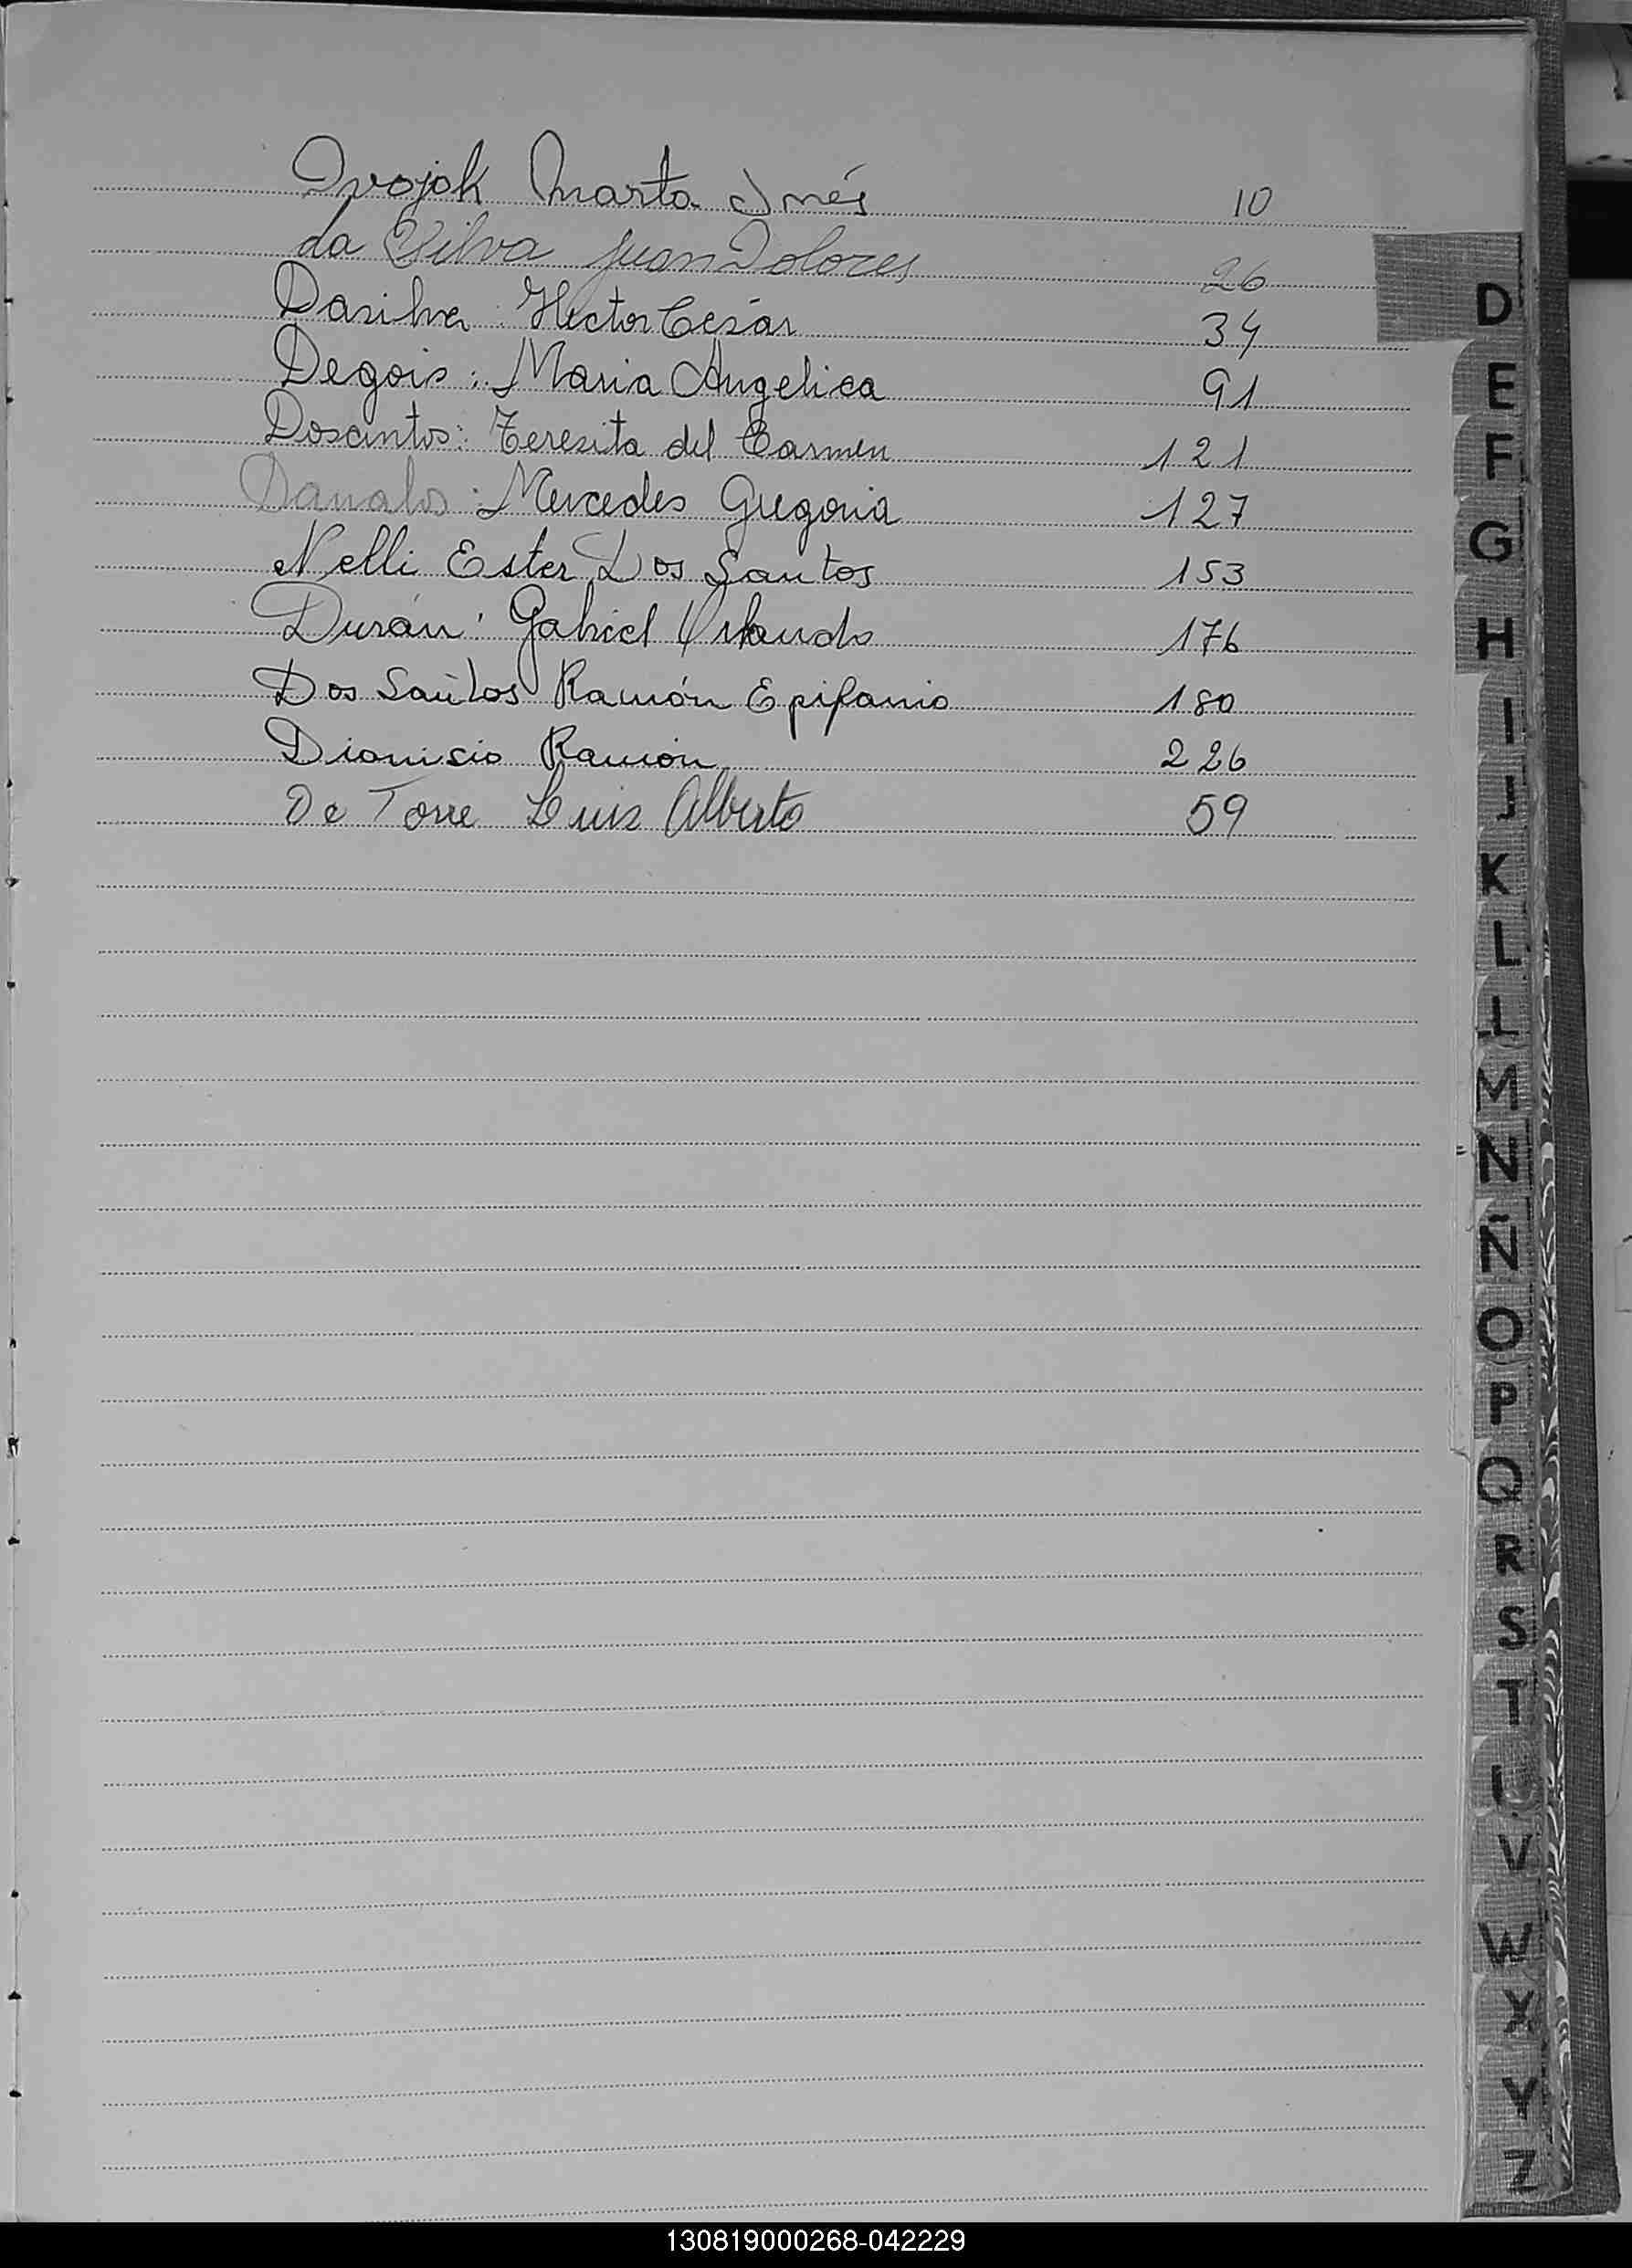 Dvojak Marta Inés 10
da Silva Juan Dolores 26
Dasilva: Hector César 34
Degois: Maria Angelica 91
Dosantos: Teresita del Carmen 121
Mercedes Gregoria 127
Nelli Ester Dos Santos 153
Durán: Gabriel Orlando 176
Dos Santos Ramón Epifanio 180
Dionisio Ramón 226
De Torre Luis Alberto 59
D
E
F
G
H
I
J
K
L
L
M
N
Ñ
O
P
Q
R
S
T
V
W
X
Y
Z
130819000268-042229